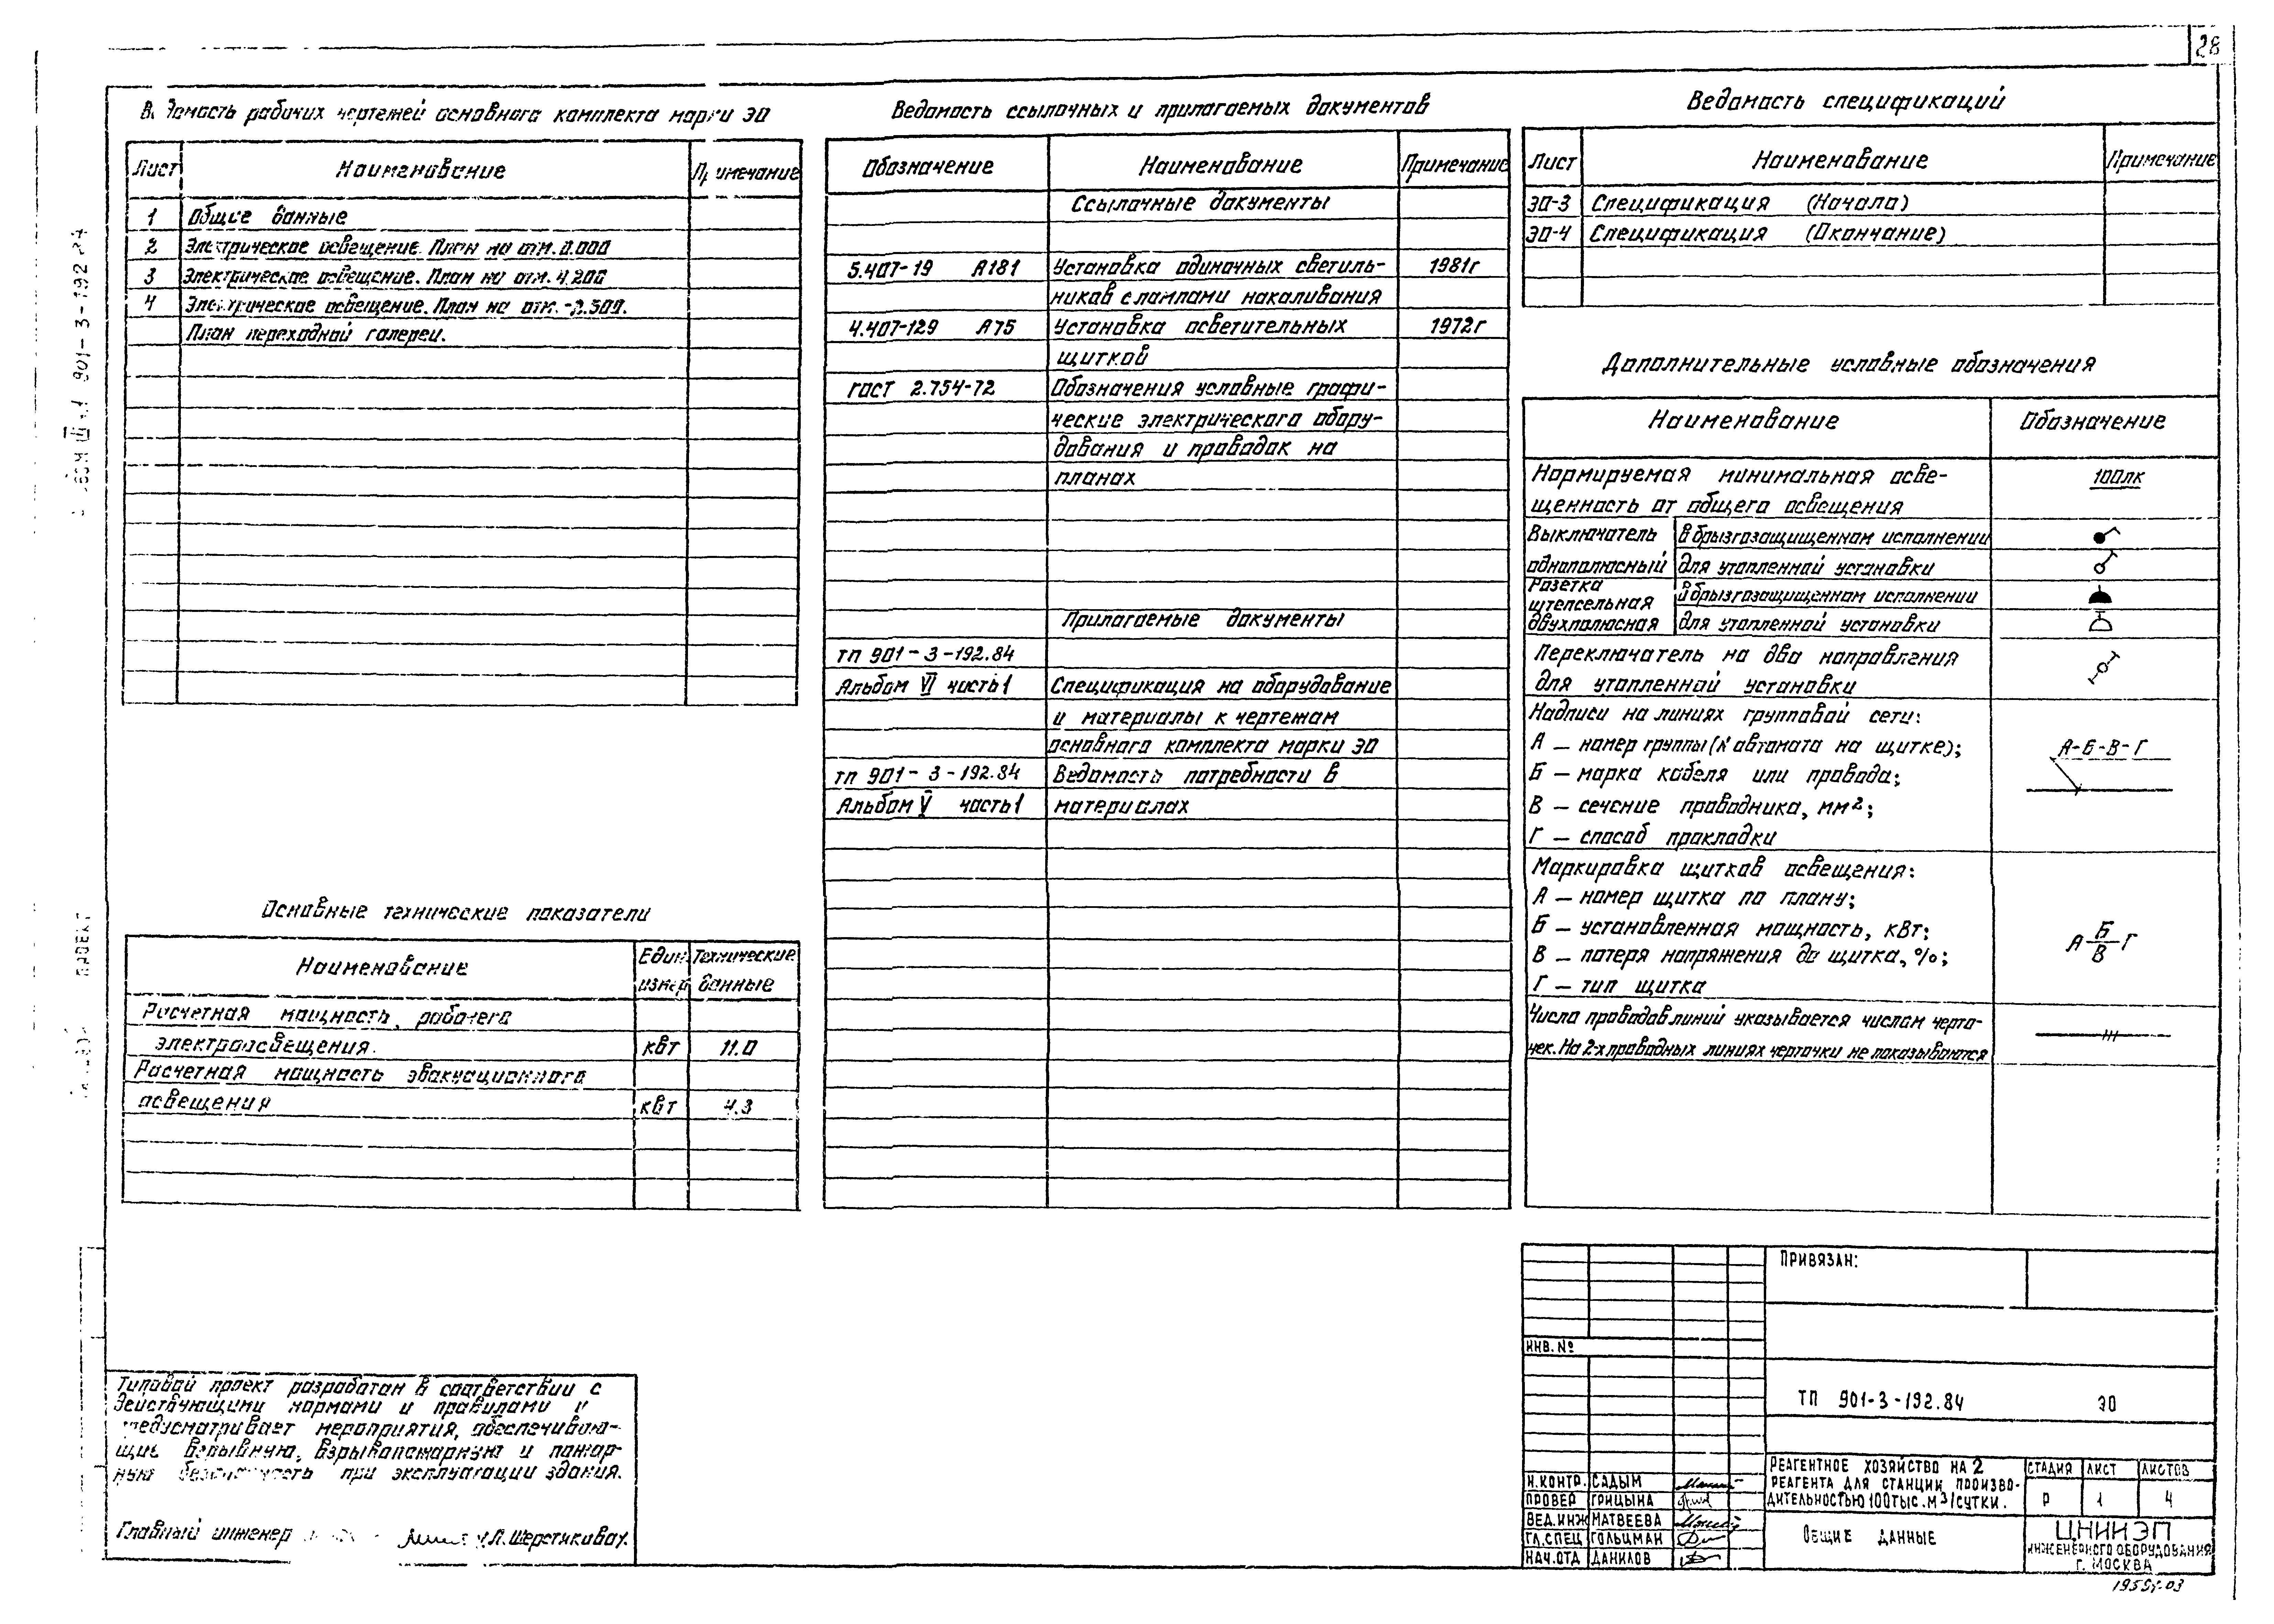 28
Ведомость рабочих чертежей основного комплекта марки ЭО
Лист Наименование Примечание
1 Общие данные
2 Электрическое освещение. План на отм. 0.000
3 Электрическое освещение. План на отм. 4.200
4 Электрическое освещение. План на отм.
План переходной галереи.
Основные технические показатели
Наименование Един. измер Технические данные
Расчетная мощность рабочего
электроосвещения. кВт 11.0
Расчетная мощность эвакуационного
освещения кВт 4.3
Типовой проект разработан в соответствии с
действующими нормами и правилами и
предусматривает мероприятия, обеспечиваю-
щие взрывную, взрывопожарную и пожар-
ную безопасность при эксплуатации здания.
Главный инженер /Л. Шерстякова/.
Ведомость ссылочных и прилагаемых документов
Обозначение Наименование Примечание
Ссылочные документы
5.407-19 А181 Установка одиночных светиль- 1981г
ников с лампами накаливания
4.407-129 А75 Установка осветительных 1972г
щитков
гост 2.754-72 Обозначения условные графи-
ческие электрического обору-
дования и проводок на
планах
Прилагаемые документы
тп 901-3-192.84
Альбом VI часть 1 Спецификация на оборудование
и материалы к чертежам
основного комплекта марки ЭО
тп 901-3-192.84 Ведомость потребности в
Альбом V часть 1 материалах
Ведомость спецификаций
Лист Наименование Примечание
ЭО-3 Спецификация (Начало)
ЭО-4 Спецификация (Окончание)
Дополнительные условные обозначения
Наименование Обозначение
Нормируемая минимальная осве- 100лк
щенность от общего освещения
Выключатель в брызгозащищенном исполнении
однополюсный для утопленной установки
Розетка в брызгозащищенном исполнении
штепсельная
двухполюсная для утопленной установки
Переключатель на два направления
для утопленной установки
Надписи на линиях групповой сети:
А – номер группы (№ автомата на щитке); А-Б-В-Г
Б – марка кабеля или провода;
В – сечение проводника, мм2;
Г – способ прокладки
Маркировка щитков освещения:
А – номер щитка по плану;
Б – установленная мощность, кВт; А Б/В Г
В – потеря напряжения до щитка, %;
Г – тип щитка
Число проводов линий указывается числом черто-
чек. На 2-х проводных линиях черточки не показываются
ПРИВЯЗАН:
ИНВ. №
ТП 901-3-192.84 ЭО
Н.КОНТР. САДЫМ
ПРОВЕР ГРИЦЫНА
ВЕД.ИНЖ МАТВЕЕВА
ГЛ.СПЕЦ ГОЛЬЦМАН
НАЧ.ОТД ДАНИЛОВ
РЕАГЕНТНОЕ ХОЗЯЙСТВО НА 2
РЕАГЕНТА ДЛЯ СТАНЦИИ ПРОИЗВО-
ДИТЕЛЬНОСТЬЮ 100 ТЫС. М3/СУТКИ.
СТАДИЯ ЛИСТ ЛИСТОВ
Р 1 4
ОБЩИЕ ДАННЫЕ
ЦНИИЭП
ИНЖЕНЕРНОГО ОБОРУДОВАНИЯ
Г. МОСКВА